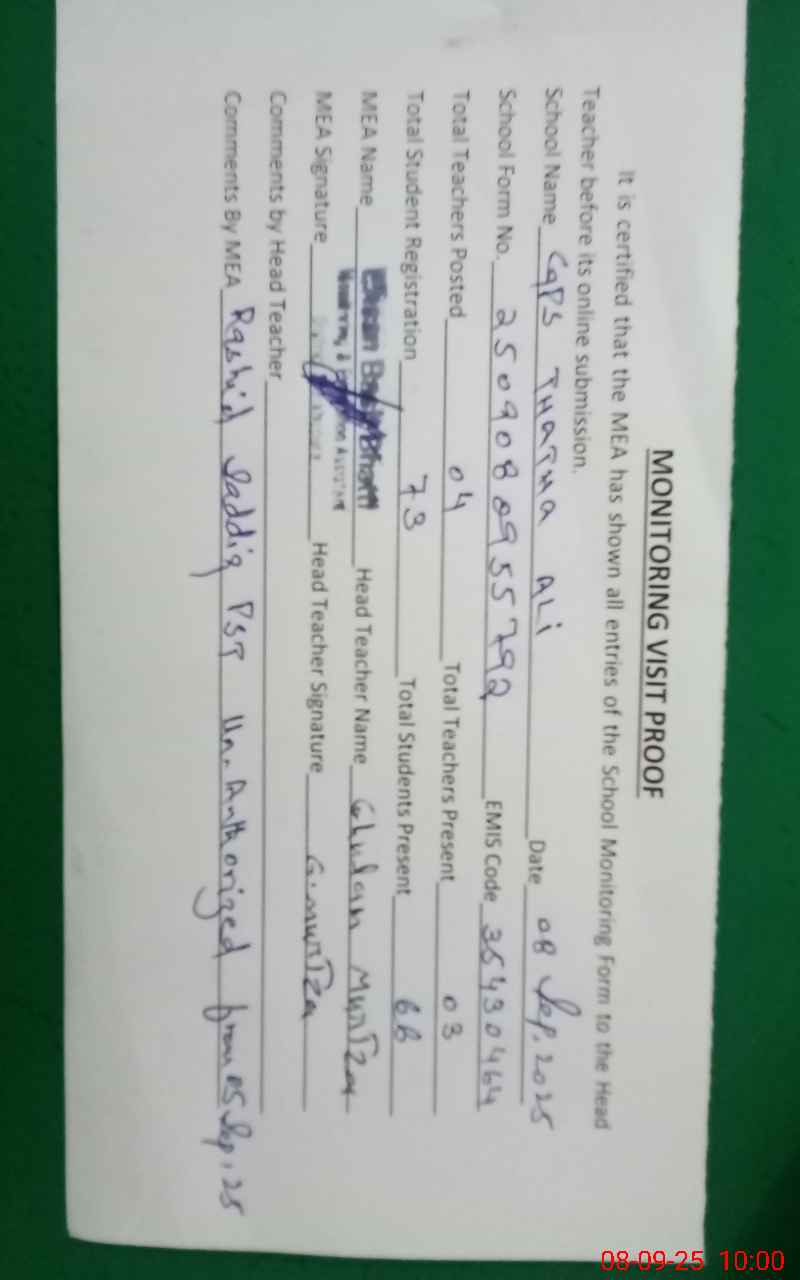 MONITORING VISIT PROOF
It is certified that the MEA has shown all entries of the School Monitoring Form to the Head
Teacher before its online submission.
School Name GPS THATHA ALI Date 08 Sep, 2025
School Form No. 2509080955792 EMIS Code 35430464
Total Teachers Posted 04 Total Teachers Present 03
Total Student Registration 73 Total Students Present 66
MEA Name Bhatti Head Teacher Name Ghulam Murtza
Monitoring &
MEA Signature Head Teacher Signature G.murtza
Comments by Head Teacher
Comments By MEA Rashid Saddiq PST Un-Authorized from 05 Sep, 25
08-09-25 10:00